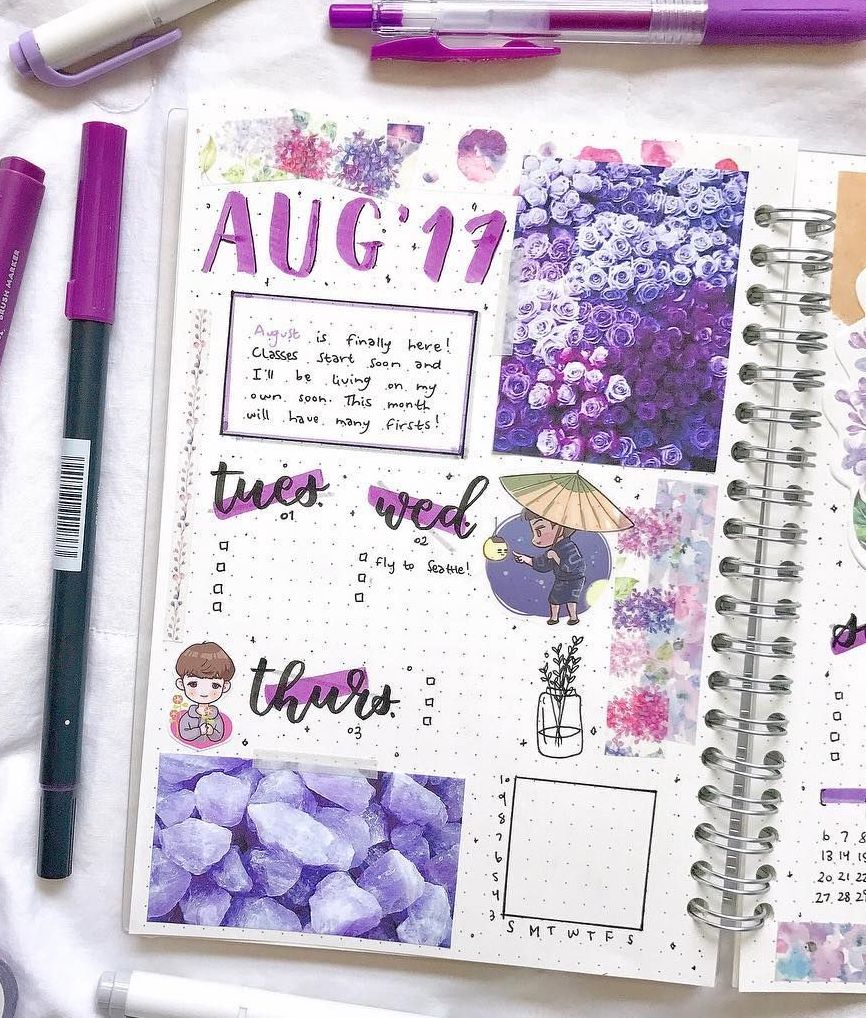 BRUSH MARKER
AUG'17
August is finally here!
Classes start soon and
I'll be living on my
own soon. This month
will have many firsts!
tues
01
wed
02
fly to Seattle!
thurs.
03
10
9
8
7
6
5
4
3
S M T W T F S
6 7 8
13 14 15
20 21 22
27 28 29